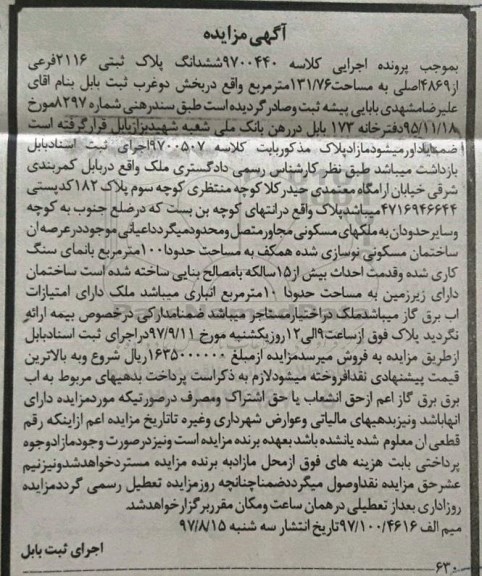 آگهی مزایده
بموجب پرونده اجرایی کلاسه ۹۷۰۰۴۴۰ششدانگ پلاک ثبتی ۲۱۱۶فرعی
از۴۸۶۹اصلی به مساحت۱۳۱/۷۶مترمربع واقع دربخش دوغرب ثبت بابل بنام اقای
علیرضامشهدی بابایی پیشه ثبت وصادرگردیده است طبق سندرهنی شماره ۸۲۹۷مورخ
۹۵/۱۱/۱۸دفترخانه ۱۷۳ بابل دررهن بانک ملی شعبه شهیدبزازبابل قرارگرفته است
ضمنایاداورمیشودمازادپلاک مذکوربابت کلاسه ۹۷۰۰۵۰۷اجرای ثبت اسنادبابل
بازداشت میباشد طبق نظر کارشناس رسمی دادگستری ملک واقع دربابل کمربندی
شرقی خیابان ارامگاه معتمدی حیدرکلا کوچه منتظری کوچه سوم پلاک ۱۸۲کدپستی
۴۷۱۶۹۴۶۶۴۴میباشدپلاک واقع درانتهای کوچه بن بست که درضلع جنوب به کوچه
وسایرحدودان به ملکهای مسکونی مجاورمتصل ومحدودمیگرددداعیانی موجوددرعرصه ان
ساختمان مسکونی نوسازی شده همکف به مساحت حدودا۱۰۰مترمربع بانمای سنگ
کاری شده وقدمت احداث بیش از۱۵سالکه بامصالح بنایی ساخته شده است ساختمان
دارای زیرزمین به مساحت حدودا ۱۰مترمربع انباری میباشد ملک دارای امتیازات
اب برق گاز میباشدملک دراختیارمستاجر میباشد ضمنامدارکی درخصوص بیمه ارائه
نگردید پلاک فوق ازساعت۹الی۱۲روزیکشنبه مورخ ۹۷/۹/۱۱دراجرای ثبت اسنادبابل
ازطریق مزایده به فروش میرسدمزایده ازمبلغ ۱۶۳۵۰۰۰۰۰۰ریال شروع وبه بالاترین
قیمت پیشنهادی نقدافروخته میشودلازم به ذکراست پرداخت بدهیهای مربوط به اب
برق برق گاز اعم ازحق انشعاب یا حق اشتراک ومصرف درصورتیکه موردمزایده دارای
انهاباشد ونیزبدهیهای مالیاتی وعوارض شهرداری وغیره تاتاریخ مزایده اعم ازاینکه رقم
قطعی ان معلوم شده یانشده باشد بعهده برنده مزایده است ونیزدرصورت وجودمازادوجوه
پرداختی بابت هزینه های فوق ازمحل مازادبه برنده مزایده مستردخواهدشدونیزنیم
عشرحق مزایده نقداوصول میگرددضمناچنانچه روزمزایده تعطیل رسمی گرددمزایده
روزاداری بعداز تعطیلی درهمان ساعت ومکان مقرربرگزارخواهدشد.
میم الف ۹۷/۱۰۰/۴۶۱۶تاریخ انتشار سه شنبه ۹۷/۸/۱۵
اجرای ثبت بابل
۶۳۰